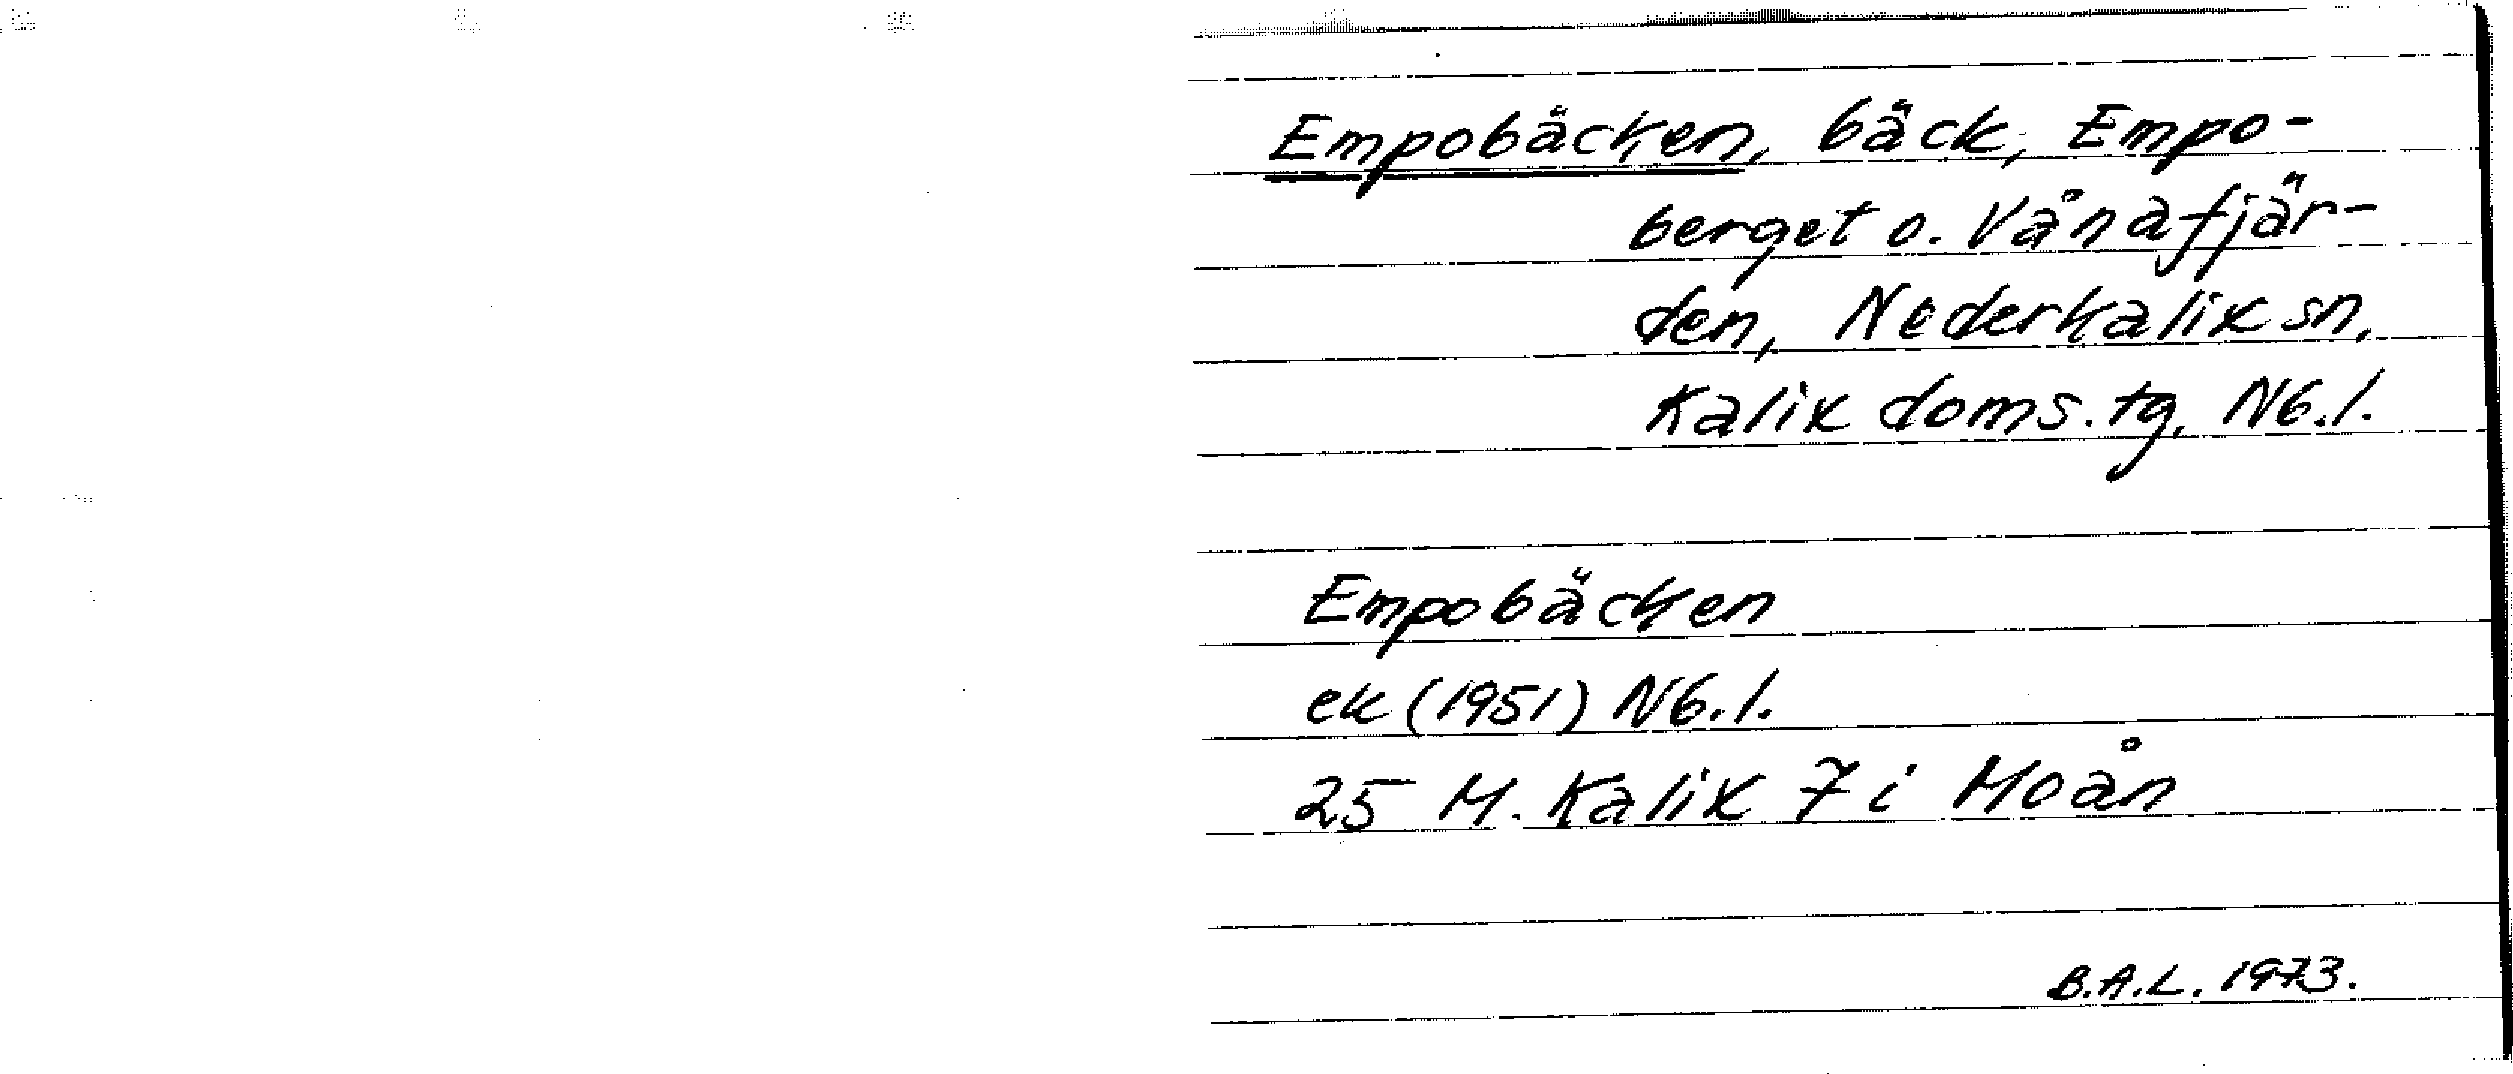 Empobäcken, bäck, Empo-
berget o. Vånafjär-
den, Nederkalix sn,
Kalix doms. tg, Nb. l.
Empobäcken
ek (1951) Nb. l.
25 M. Kalix 7 i Moån
B.A.L. 1973.